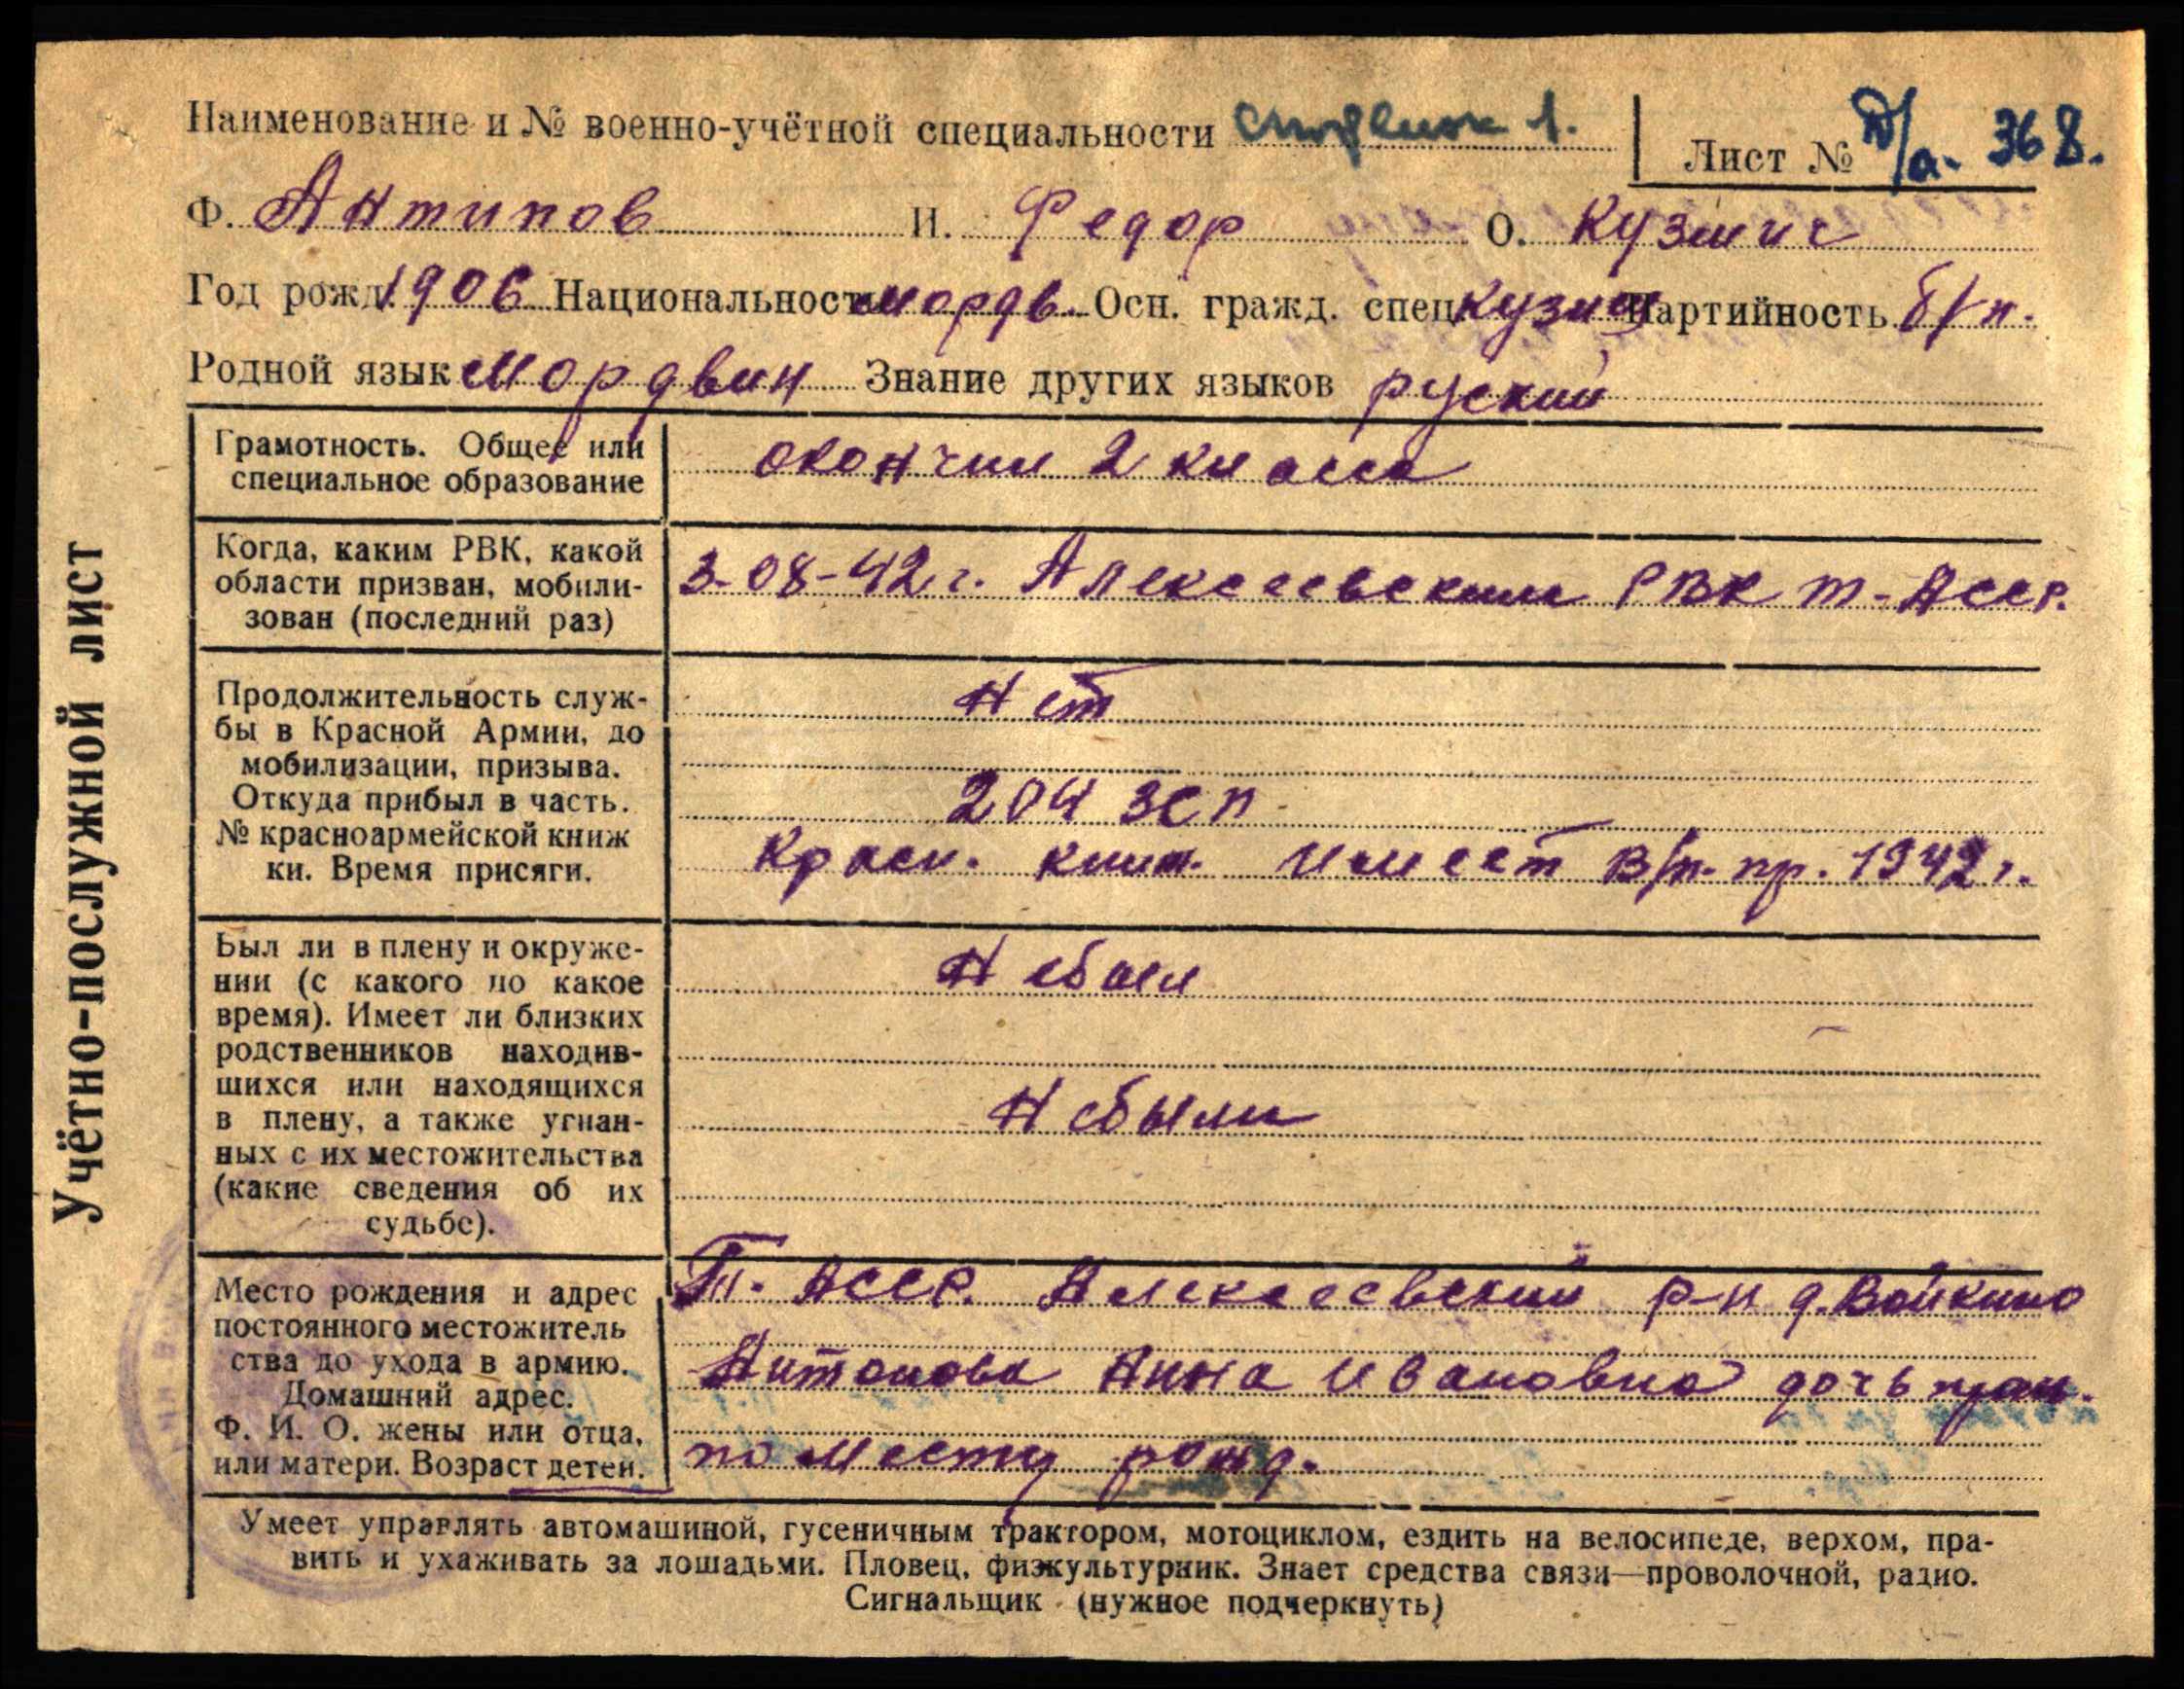 Учётно-послужной лист
Наименование и № военно-учётной специальности стрелок 1. Лист № 368.
Ф. Антипов И. Федор О. Кузмич
Год рожд. 1906 Национальность мордв. Осн. гражд. спец. Кузнец Партийность б/п.
Родной язык Мордвин Знание других языков руский
Грамотность. Общее или
специальное образование
окончил 2 класса
Когда, каким РВК, какой
области призван, мобили-
зован (последний раз)
3-08-42 г. Алексеевским РВК Т-АССР.
Продолжительность служ-
бы в Красной Армии, до
мобилизации, призыва.
Откуда прибыл в часть.
№ красноармейской книж
ки. Время присяги.
Нет
204 зсп
Красн. книж. имеет в/п. пр. 1942 г.
Был ли в плену и окруже-
нии (с какого по какое
время). Имеет ли близких
родственников находив-
шихся или находящихся
в плену, а также угнан-
ных с их местожительства
(какие сведения об их
судьбе).
Небыл
Небыли
Место рождения и адрес
постоянного местожитель
ства до ухода в армию.
Домашний адрес.
Ф. И. О. жены или отца,
или матери. Возраст детей.
Т. АССР. Алексеевский р-н д. Войкино
Анна Ивановна дочь
по месту рожд.
Умеет управлять автомашиной, гусеничным трактором, мотоциклом, ездить на велосипеде, верхом, пра-
вить и ухаживать за лошадьми. Пловец, физкультурник. Знает средства связи—проволочной, радио.
Сигнальщик (нужное подчеркнуть)